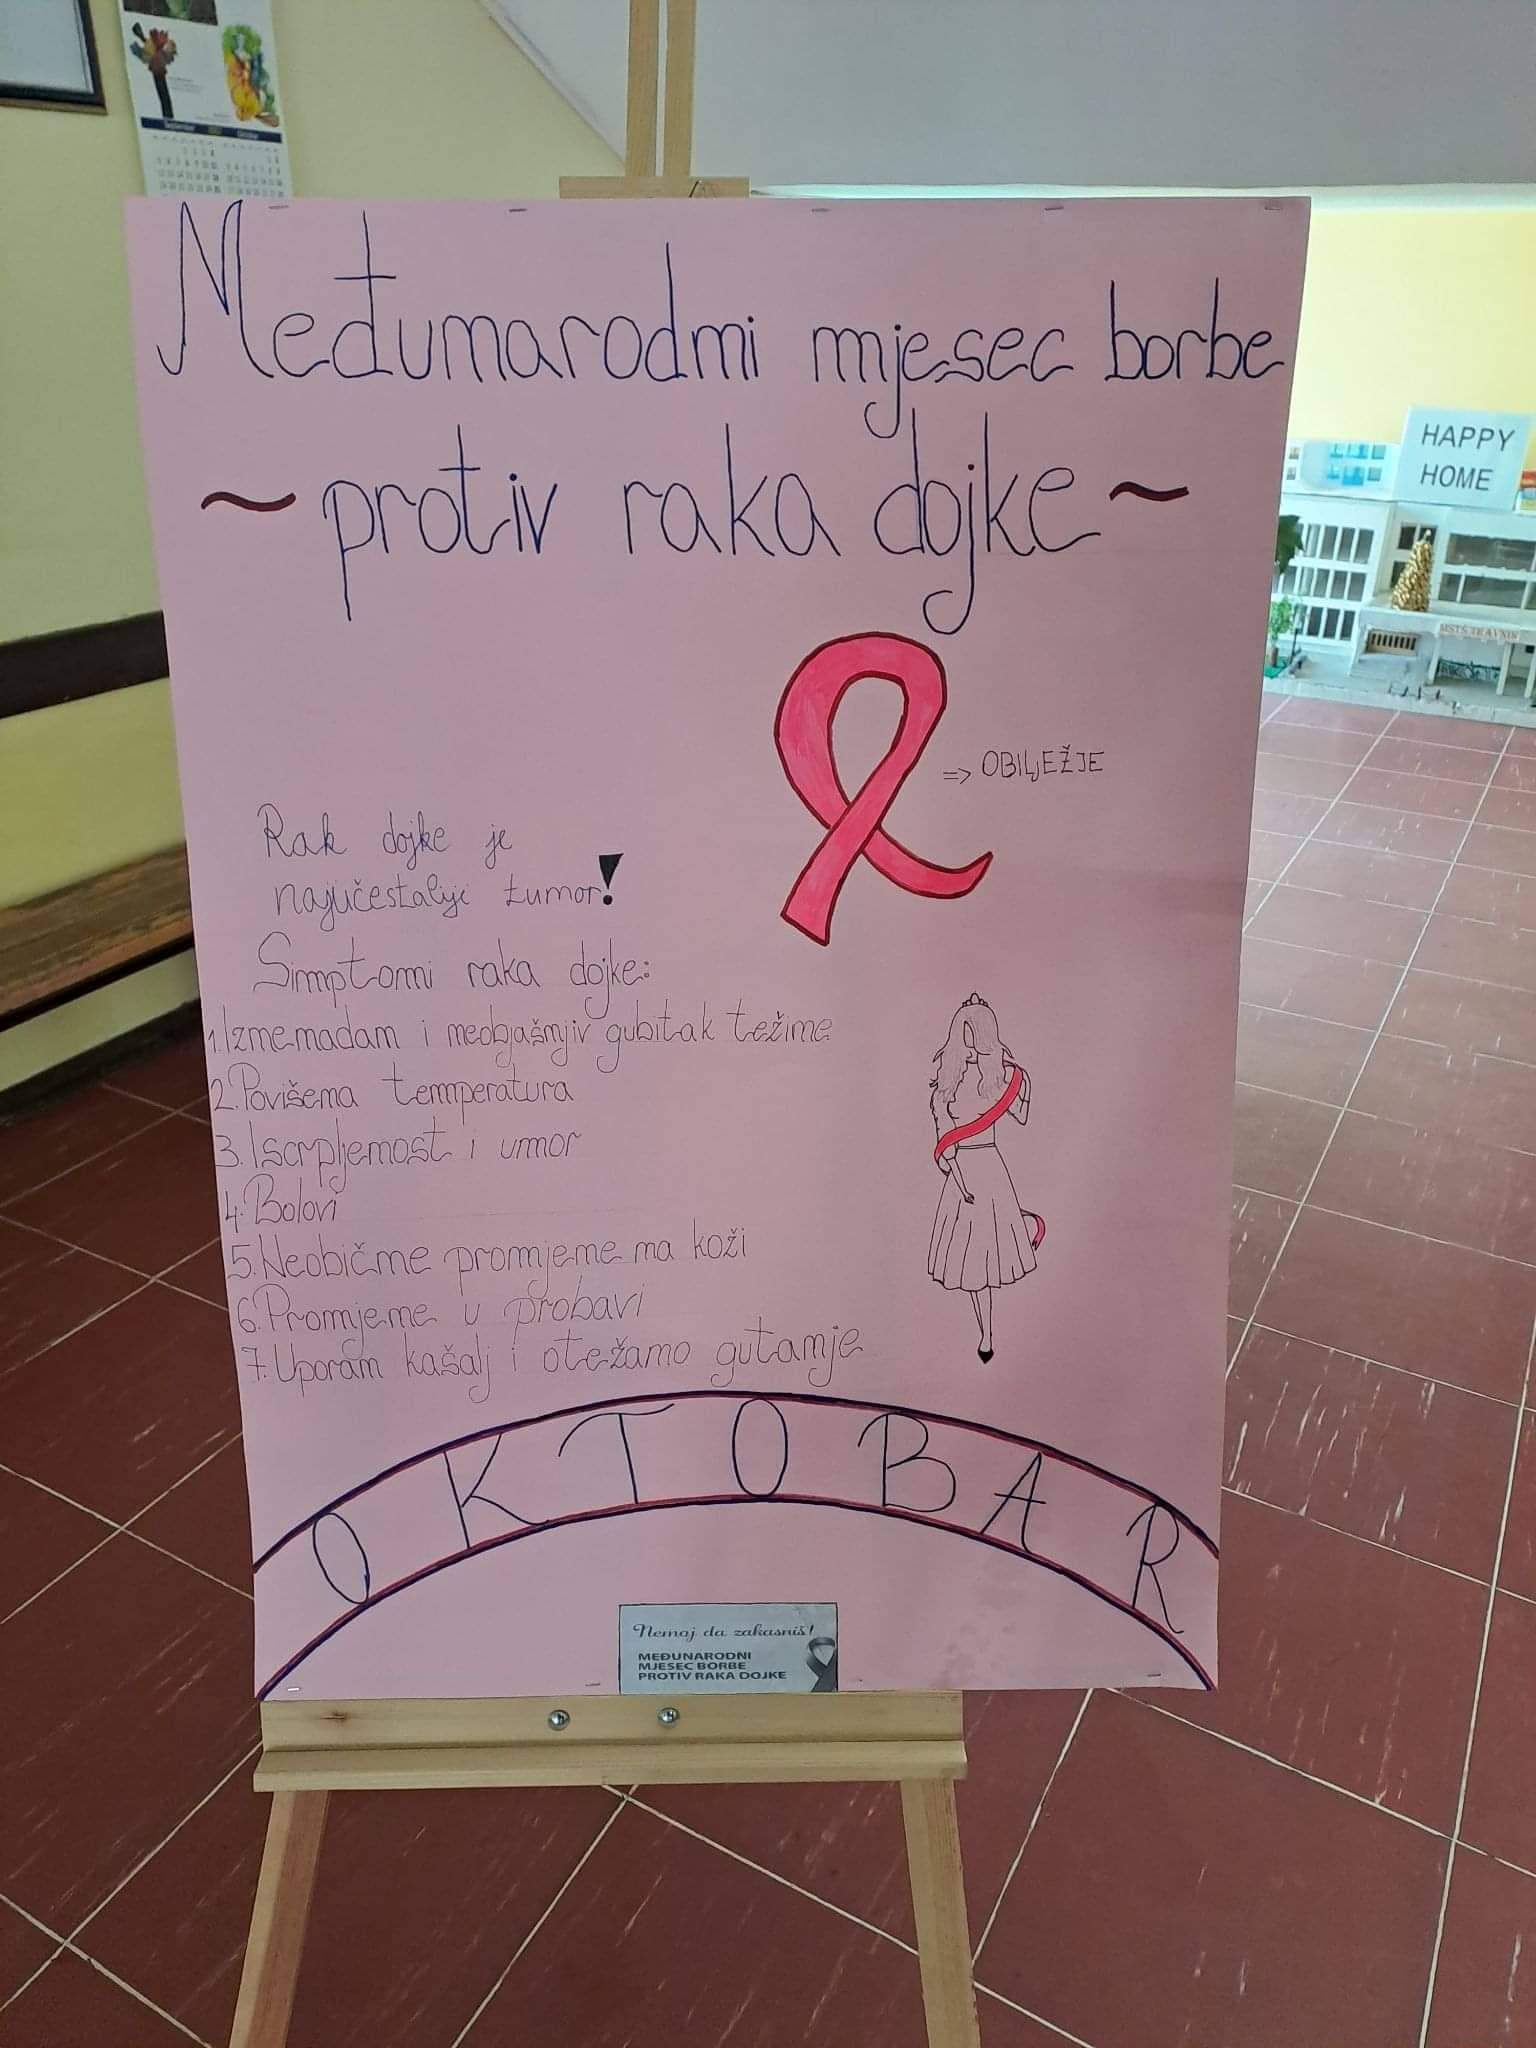 Međunarodni mjesec borbe
~ protiv raka dojke ~
=> OBILJEŽJE
Rak dojke je
najučestaliji tumor!
Simptomi raka dojke:
1. Iznenadan i neobjašnjiv gubitak težine
2. Povišena temperatura
3. Iscrpljenost i umor
4. Bolovi
5. Neobične promjene na koži
6. Promjene u probavi
7. Uporan kašalj i otežano gutanje
OKTOBAR
Nemoj da zakasniš!
MEĐUNARODNI
MJESEC BORBE
PROTIV RAKA DOJKE
HAPPY
HOME
MSTŠ TRAVNIK